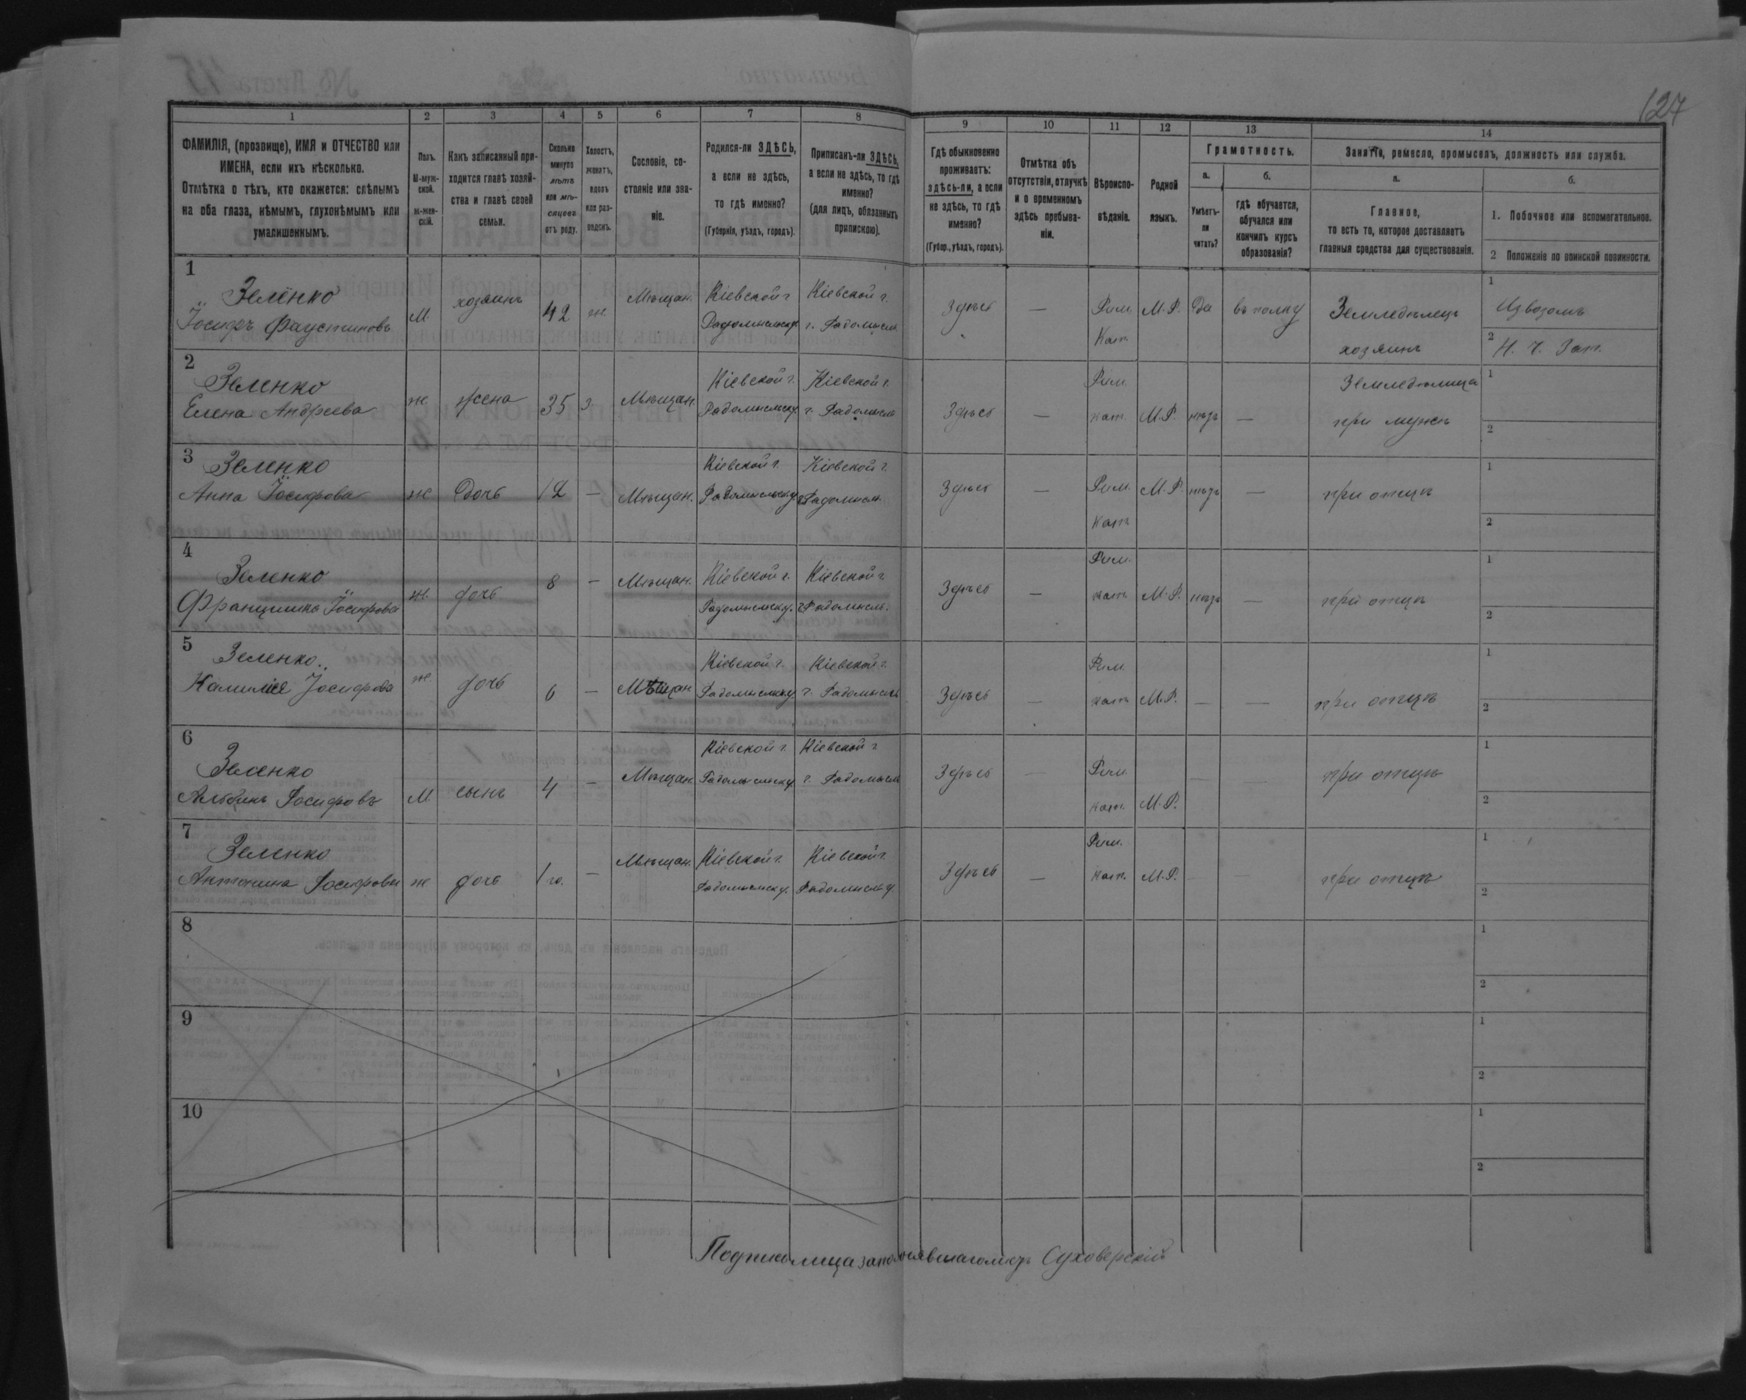 127
1 2 3 4 5 6 7 8 9 10 11 12 13 14
ФАМИЛІЯ, (прозвище), ИМЯ и ОТЧЕСТВО или
ИМЕНА, если ихъ нѣсколько.
Отмѣтка о тѣхъ, кто окажется: слѣпымъ
на оба глаза, нѣмымъ, глухонѣмымъ или
умалишеннымъ.
Полъ.
М-муж-
ской.
ж-жен-
скій.
Какъ записанный при-
ходится главѣ хозяй-
ства и главѣ своей
семьи.
Сколько
минуло
лѣтъ
или мѣ-
сяцевъ
отъ роду.
Холостъ,
женатъ,
вдовъ
или раз-
веденъ.
Сословіе, со-
стояніе или зва-
ніе.
Родился-ли ЗДѢСЬ,
а если не здѣсь,
то гдѣ именно?
(Губернія, уѣздъ, городъ).
Приписанъ-ли ЗДѢСЬ,
а если не здѣсь, то гдѣ
именно?
(для лицъ, обязанныхъ
припискою).
Гдѣ обыкновенно
проживаетъ:
здѣсь-ли, а если
не здѣсь, то гдѣ
именно?
(Губер., уѣздъ, городъ).
Отмѣтка объ
отсутствіи, отлучкѣ
и о временномъ
здѣсь пребыва-
ніи.
Вѣроиспо-
вѣданіе.
Родной
языкъ.
Грамотность.
а.
Умѣетъ-
ли
читать?
б.
гдѣ обучается,
обучался или
кончилъ курсъ
образованія?
Занятіе, ремесло, промыселъ, должность или служба.
а.
Главное,
то есть то, которое доставляетъ
главныя средства для существованія.
б.
1. Побочное или вспомогательное.
2 Положеніе по воинской повинности.
1
Зеленко Хозяинъ Мѣщан. Кіевской г. Кіевской г. Здѣсь — Рим. М.Р. Да въ полку Земледѣлецъ 1 Извозомъ
Іосифъ Фаустиновъ М 42 ж Радомысльску г. Радомысль Кат. хозяинъ 2
2
Зеленко Кіевской г. Кіевской г. Рим. Земледѣлица 1
Елена Андреева ж жена 35 з. Мѣщан. Радомысльску г. Радомысль Здѣсь — кат. М.Р. нѣтъ — при мужѣ 2
3
Зеленко Кіевской г. Кіевской г. 1
Анна Іосифова ж Дочь 12 — Мѣщан. Радомысльску г. Радомысль Здѣсь — Рим. М.Р. нѣтъ — при отцѣ
Кат. 2
4
Зеленко 8 — Мѣщан. Кіевской г. Кіевской г. Рим. 1
Францишка Іосифова ж. дочь Радомысльску. г. Радомысль. Здѣсь — кат. М.Р. нѣтъ — при отцѣ 2
5
Зеленко Кіевской г. Кіевской г. Рим. 1
Іосифова ж дочь 6 — Мѣщан Радомысльску г. Радомысль Здѣсь — кат. М.Р. — — при отцѣ 2
6
Зеленко Кіевской г. Кіевской г. Рим. 1
Альбинъ Іосифовъ М сынъ 4 — Мѣщан Радомысльску г. Радомысль Здѣсь — кат. М.Р. при отцѣ 2
7
Зеленко Мѣщан. Кіевской г. Кіевской г. Рим. 1
Антонина Іосифова ж дочь 1 г. — Радомысльску. Радомысльу Здѣсь Кат. М.Р. при отцѣ 2
8 1
2
9 1
2
10 1
2
Суховерскій